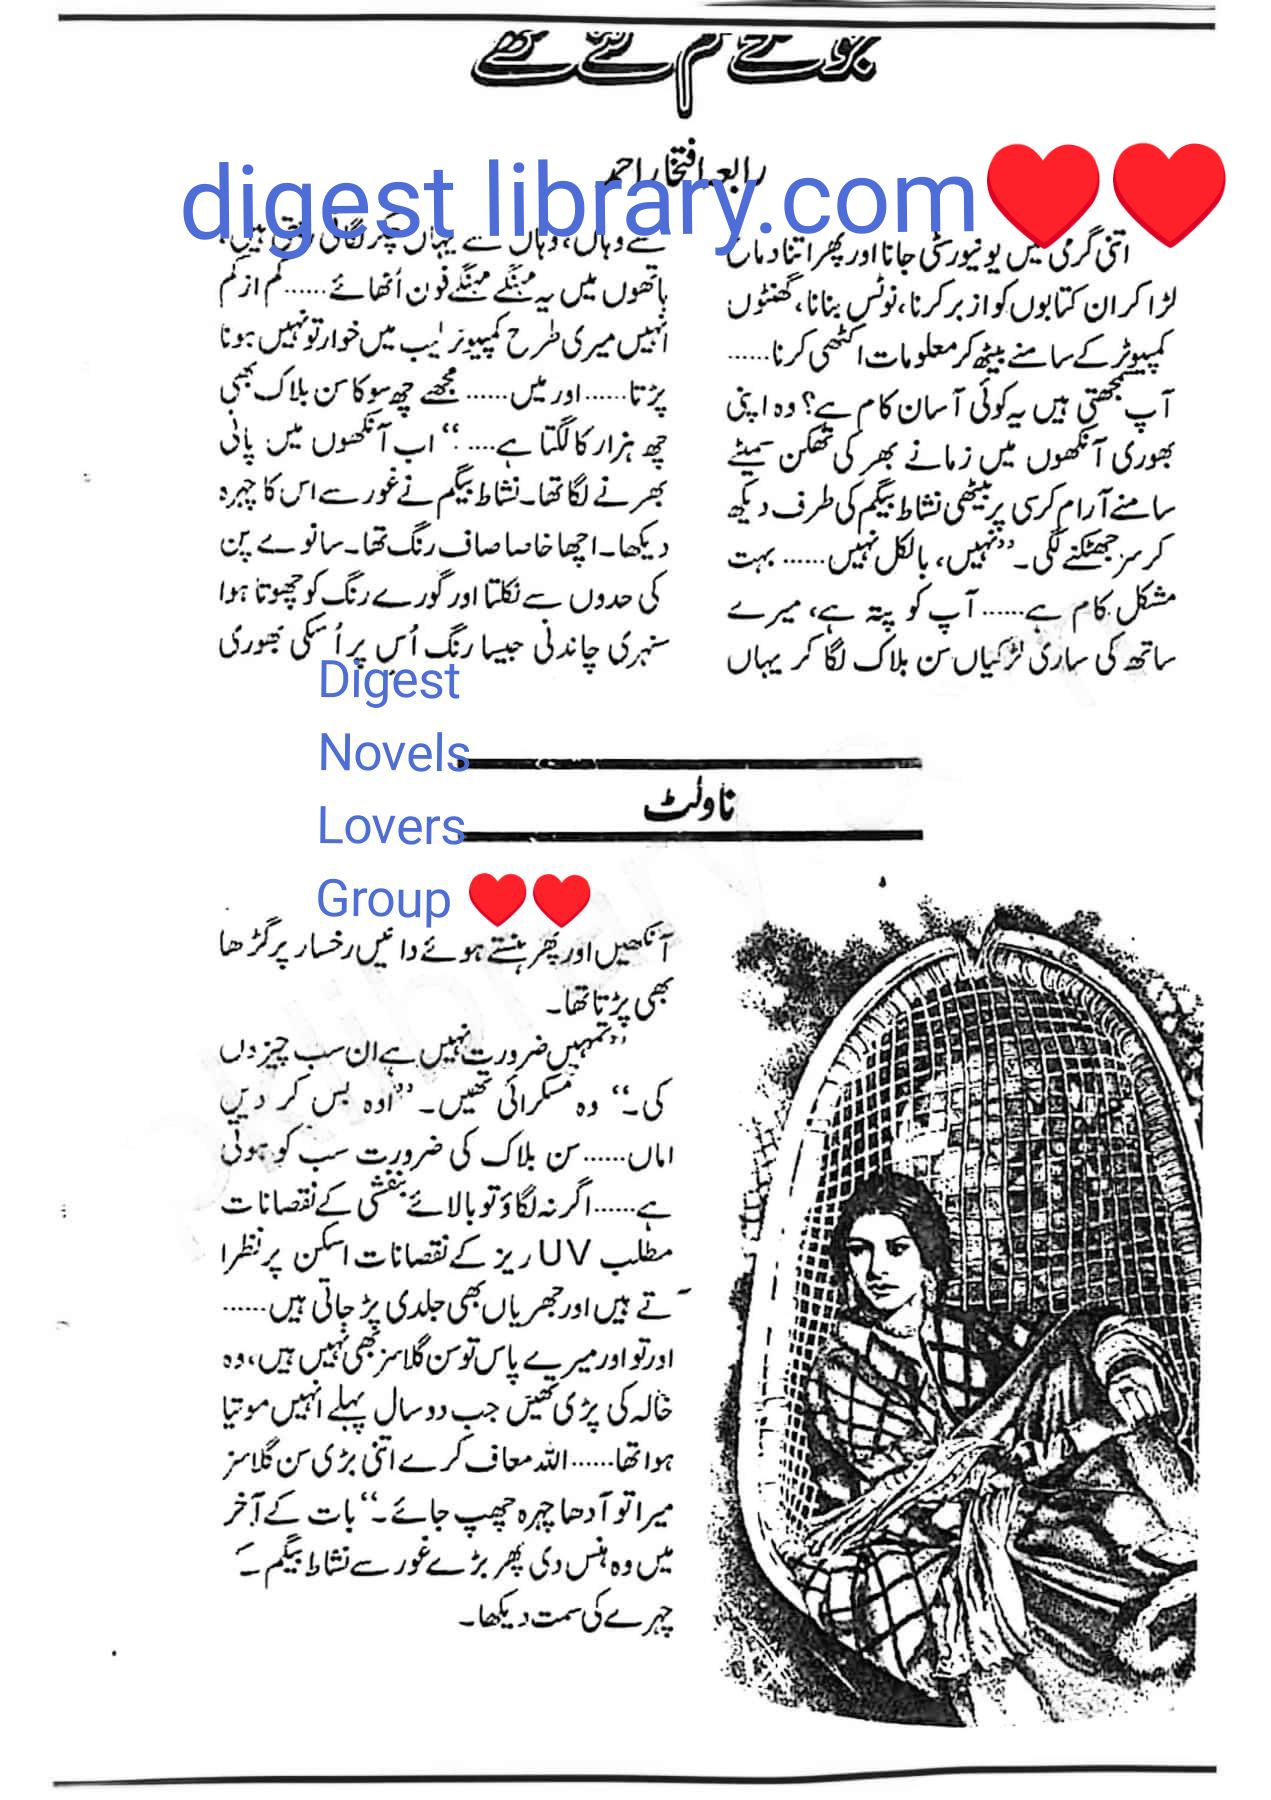 رابعہ افتخار احمد
digest library.com
اتنی گرمی میں یونیورسٹی جانا اور پھر اتنا دماغ
لڑا کر ان کتابوں کو ازبر کرنا، نوٹس بنانا، گھنٹوں
کمپیوٹر کے سامنے بیٹھ کر معلومات اکٹھی کرنا......
آپ سمجھتی ہیں یہ کوئی آسان کام ہے؟ وہ اپنی
بھوری آنکھوں میں زمانے بھر کی تھکن سمیٹے
سامنے آرام کرسی پر بیٹھی نشاط بیگم کی طرف دیکھ
کر سر جھٹکنے لگی۔ ”نہیں، بالکل نہیں...... بہت
مشکل کام ہے...... آپ کو پتہ ہے، میرے
ساتھ کی ساری لڑکیاں سن بلاک لگا کر یہاں
سے وہاں، وہاں سے یہاں چکر لگاتی رہتی ہیں،
ہاتھوں میں یہ مہنگے مہنگے فون اُٹھائے...... کم از کم
انہیں میری طرح کمپیوٹر لیب میں خوار تو نہیں ہونا
پڑتا...... اور میں...... مجھے چھ سو کا سن بلاک بھی
چھ ہزار کا لگتا ہے....“ اب آنکھوں میں پانی
بھرنے لگا تھا۔ نشاط بیگم نے غور سے اس کا چہرہ
دیکھا۔ اچھا خاصا صاف رنگ تھا۔ سانولے پن
کی حدوں سے نکلتا اور گورے رنگ کو چھوتا ہوا
سنہری چاندنی جیسا رنگ اُس پر اُسکی بھوری
Digest
Novels
Lovers
Group
ناولٹ
آنکھیں اور پھر ہنستے ہوئے دائیں رخسار پر گڑھا
بھی پڑتا تھا۔
”تمہیں ضرورت نہیں ہے ان سب چیزوں
کی۔“ وہ مسکرائی تھیں۔ ”اوہ بس کر دیں
اماں...... سن بلاک کی ضرورت سب کو ہوتی
ہے...... اگر نہ لگاؤ تو بالائے بنفشی کے نقصانات
مطلب UV ریز کے نقصانات اسکن پر نظر آ
تے ہیں اور جھریاں بھی جلدی پڑ جاتی ہیں......
اور تو اور میرے پاس تو سن گلاسز بھی نہیں ہیں، وہ
خالہ کی پڑی تھیں جب دو سال پہلے انہیں موتیا
ہوا تھا...... اللہ معاف کرے اتنی بڑی سن گلاسز
میرا تو آدھا چہرہ چھپ جائے۔“ بات کے آخر
میں وہ ہنس دی پھر بڑے غور سے نشاط بیگم کے
چہرے کی سمت دیکھا۔